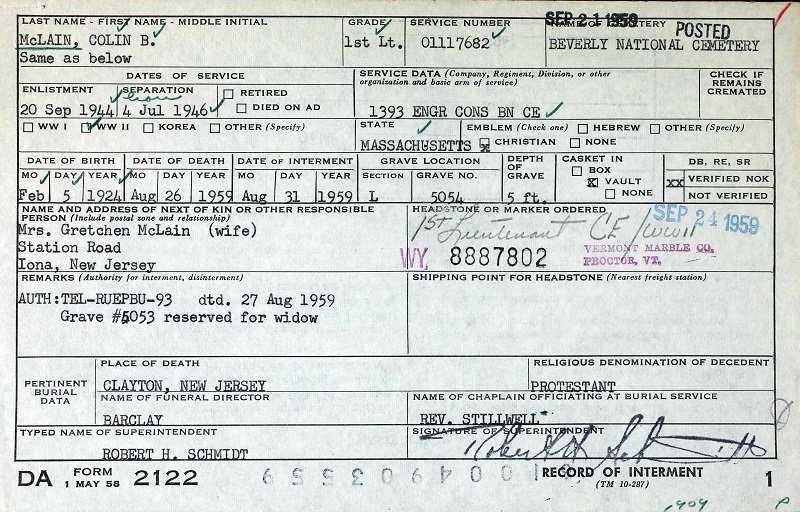 LAST NAME - FIRST NAME - MIDDLE INITIAL
McLAIN, COLIN B.
Same as below
GRADE
1st Lt.
SERVICE NUMBER
01117682
SEP 21 1959
NAME OF CEMETERY
POSTED
BEVERLY NATIONAL CEMETERY
DATES OF SERVICE
ENLISTMENT
20 Sep 1944
SEPARATION
4 Jul 1946
RETIRED
DIED ON AD
SERVICE DATA (Company, Regiment, Division, or other
organization and basic arm of service)
1393 ENGR CONS BN CE
CHECK IF
REMAINS
CREMATED
WW I WW II KOREA OTHER (Specify)
STATE
MASSACHUSETTS
EMBLEM (Check one) HEBREW OTHER (Specify)
x CHRISTIAN NONE
DATE OF BIRTH
MO DAY YEAR
Feb 5 1924
DATE OF DEATH
MO DAY YEAR
Aug 26 1959
DATE OF INTERMENT
MO DAY YEAR
Aug 31 1959
GRAVE LOCATION
SECTION GRAVE NO.
L 5054
DEPTH
OF
GRAVE
5 ft.
CASKET IN
BOX
X VAULT
NONE
DB, RE, SR
xx VERIFIED NOK
NOT VERIFIED
NAME AND ADDRESS OF NEXT OF KIN OR OTHER RESPONSIBLE
PERSON (Include postal zone and relationship)
Mrs. Gretchen McLain (wife)
Station Road
Iona, New Jersey
HEADSTONE OR MARKER ORDERED
SEP 24 1959
1st Lieutenant CE/WWII
WY, 8887802
VERMONT MARBLE CO.
PROCTOR, VT.
REMARKS (Authority for interment, disinterment)
AUTH:TEL-RUEPBU-93 dtd. 27 Aug 1959
Grave #5053 reserved for widow
SHIPPING POINT FOR HEADSTONE (Nearest freight station)
PERTINENT
BURIAL
DATA
PLACE OF DEATH
CLAYTON, NEW JERSEY
RELIGIOUS DENOMINATION OF DECEDENT
PROTESTANT
NAME OF FUNERAL DIRECTOR
BARCLAY
NAME OF CHAPLAIN OFFICIATING AT BURIAL SERVICE
REV. STILLWELL
TYPED NAME OF SUPERINTENDENT
ROBERT H. SCHMIDT
SIGNATURE OF SUPERINTENDENT
Robert H Schmidt
DA FORM 2122
1 MAY 58
RECORD OF INTERMENT
(TM 10-287)
1
1909
P